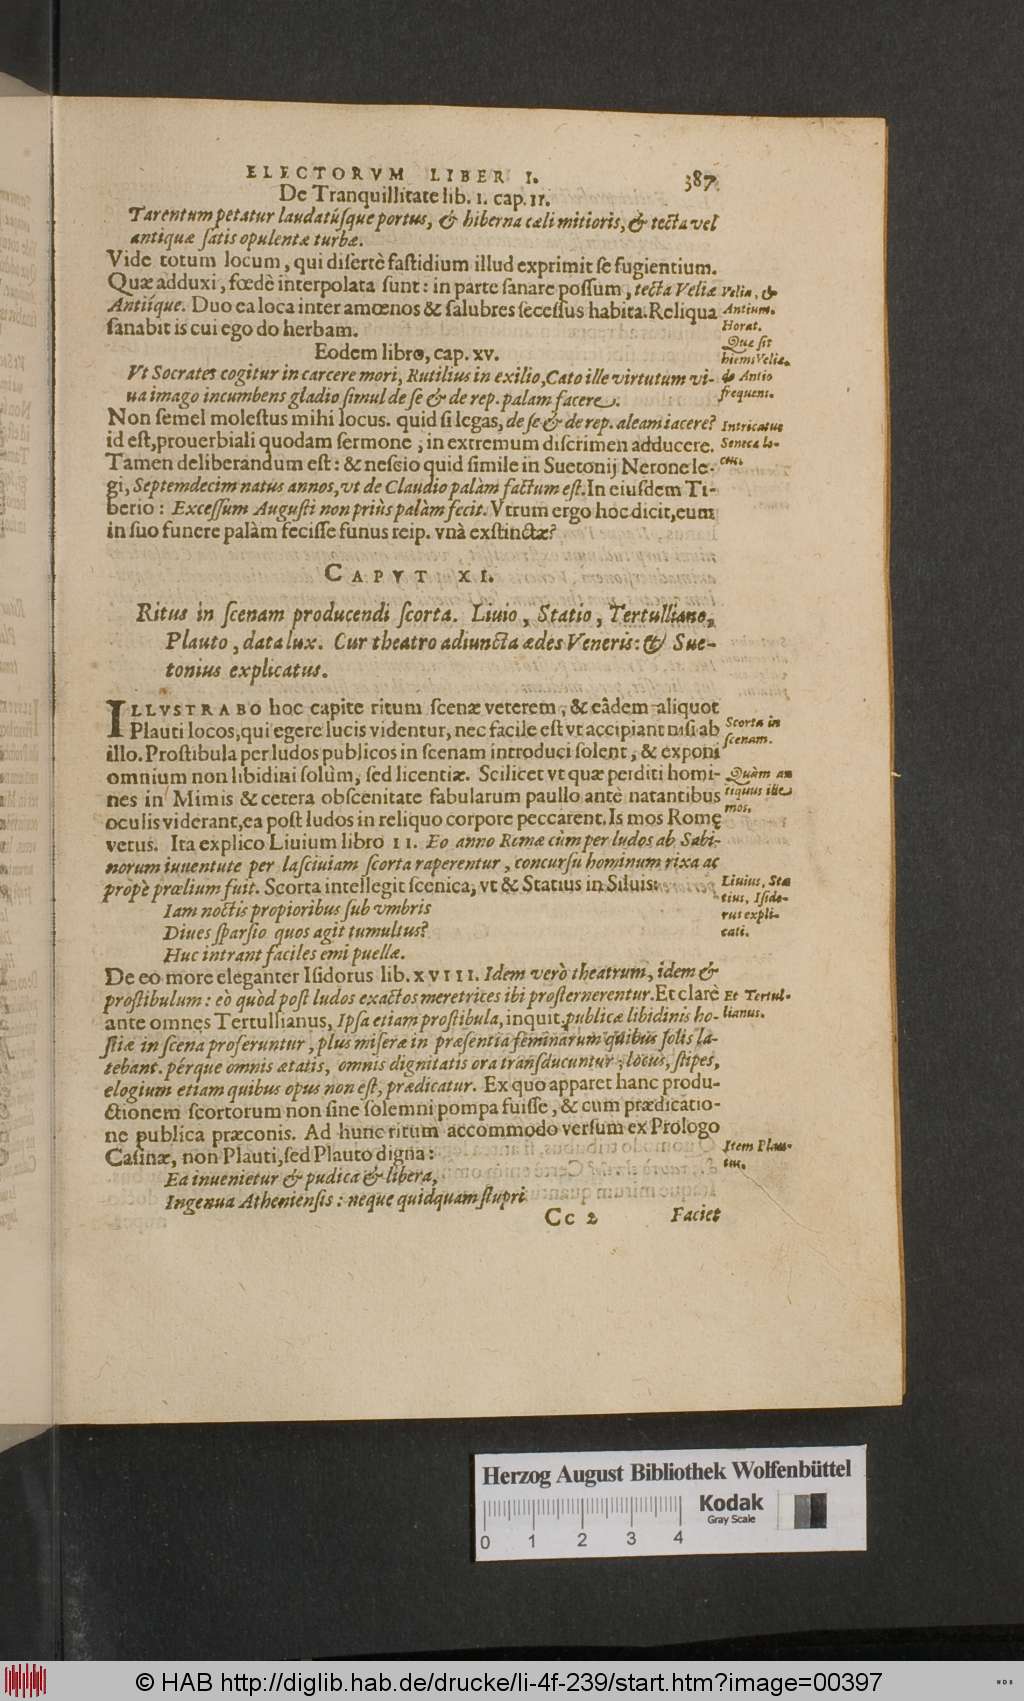 ELECTORVM LIBER I. 387
De Tranquillitate lib. 1. cap. 11.
Tarentum petatur laudatúsque portus, & hiberna cæli mitioris, & tecta vel
antiquæ satis opulentæ turbæ.
Vide totum locum, qui disertè fastidium illud exprimit se fugientium.
Quæ adduxi, fœdè interpolata sunt: in parte sanare possum, tecta Veliæ
Antiíque. Duo ea loca inter amœnos & salubres secessus habita. Reliqua
sanabit is cui ego do herbam.
Velia, &
Antium.
Horat.
Quæ sit
hiems Veliæ.
de Antio
frequent.
Eodem libro, cap. xv.
Vt Socrates cogitur in carcere mori, Rutilius in exilio, Cato ille virtutum vi-
ua imago incumbens gladio simul de se & de rep. palam facere.
Non semel molestus mihi locus. quid si legas, de se & de rep. aleam iacere?
id est, prouerbiali quodam sermone, in extremum discrimen adducere.
Tamen deliberandum est: & nescio quid simile in Suetonij Nerone le-
gi, Septemdecim natus annos, vt de Claudio palàm factum est. In eiusdem Ti-
berio: Excessum Augusti non priùs palàm fecit. Vtrum ergo hoc dicit, eum
in suo funere palàm fecisse funus reip. vnà exstinctæ?
Intricatus
Senecæ lo-
cus.
CAPVT XI.
Ritus in scenam producendi scorta. Liuio, Statio, Tertulliano,
Plauto, data lux. Cur theatro adiuncta ædes Veneris: & Sue-
tonius explicatus.
ILLVSTRABO hoc capite ritum scenæ veterem, & eâdem aliquot
Plauti locos, qui egere lucis videntur, nec facile est vt accipiant nisi ab
illo. Prostibula per ludos publicos in scenam introduci solent, & exponi
omnium non libidini solùm, sed licentiæ. Scilicet vt quæ perditi homi-
nes in Mimis & cetera obscenitate fabularum paullo antè natantibus
oculis viderant, ea post ludos in reliquo corpore peccarent. Is mos Romę
vetus. Ita explico Liuium libro 11. Eo anno Romæ cùm per ludos ab Sabi-
norum iuuentute per lasciuiam scorta raperentur, concursu hominum rixa ac
propè prœlium fuit. Scorta intellegit scenica, vt & Statius in Siluis:
Scorta in
scenam.
Quàm an
tiquus ille
mos.
Liuius, Sta
tius, Iside-
rus expli-
cati.
Iam noctis propioribus sub vmbris
Diues sparsio quos agit tumultus?
Huc intrant faciles emi puellæ.
De eo more eleganter Isidorus lib. XVIII. Idem verò theatrum, idem &
prostibulum: eò quòd post ludos exactos meretrices ibi prosternerentur. Et clarè
ante omnęs Tertullianus, Ipsa etiam prostibula, inquit, publicæ libidinis ho-
stiæ in scena proferuntur, plus miseræ in præsentia feminarum quibus solis la-
tebant. pérque omnis ætatis, omnis dignitatis ora transducuntur, locus, stipes,
elogium etiam quibus opus non est, prædicatur. Ex quo apparet hanc produ-
ctionem scortorum non sine solemni pompa fuisse, & cum prædicatio-
ne publica præconis. Ad hunc ritum accommodo versum ex Prologo
Casinæ, non Plauti, sed Plauto digna:
Et Tertul-
lianus.
Item Plau-
tus.
Ea inuenietur & pudica & libera,
Ingenua Atheniensis: neque quidquam stupri
Cc 2 Faciet
Herzog August Bibliothek Wolfenbüttel
Kodak
Gray Scale
0 1 2 3 4
© HAB http://diglib.hab.de/drucke/li-4f-239/start.htm?image=00397